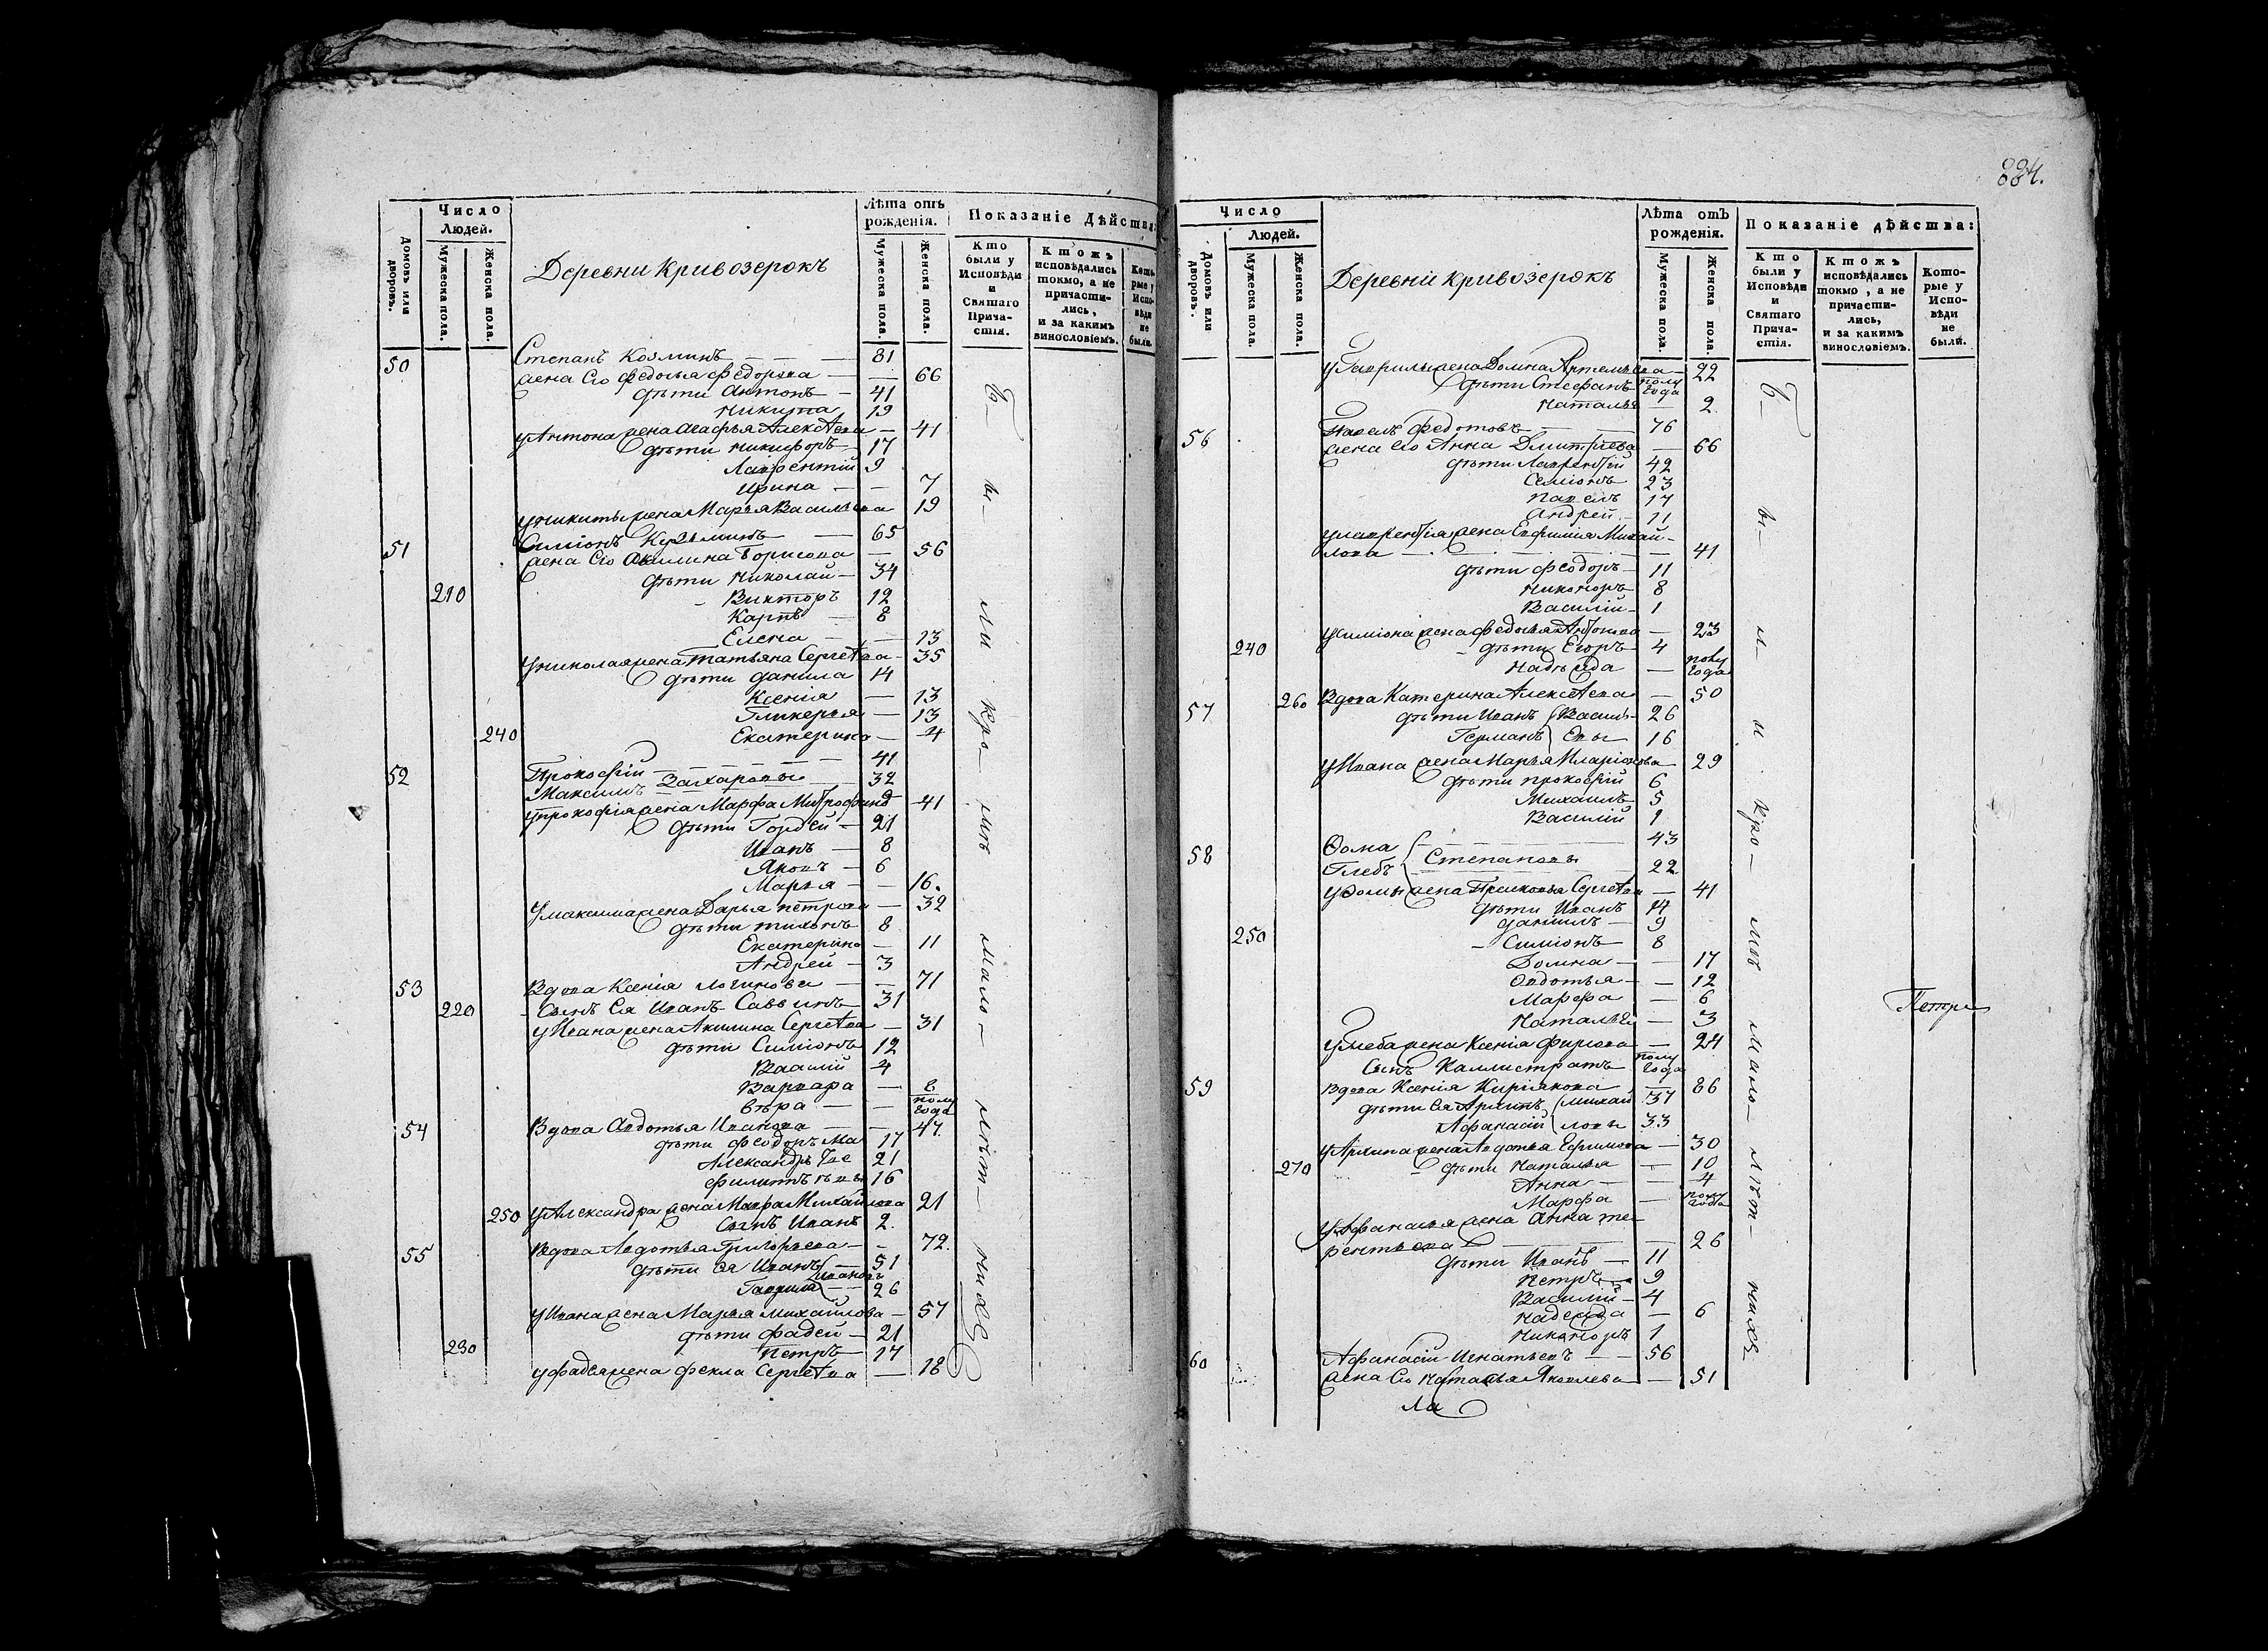 884.
Число Людей.
Домовъ или дворовъ.
Мужеска пола.
Женска пола.
Деревни Кривозерокъ
Лѣта отъ рожденія.
Мужеска пола.
Женска пола.
Показаніе Дѣйства:
Кто были у Исповѣди и Святаго Прича-стія.
Ктожъ исповѣдались токмо, а не причасти-лись, и за какимъ винословіемъ.
Кото-рые у Испо-вѣди не были.
50 Степанъ Козминъ — — — 81
жена Его Федосья Федорова — — 66
дѣти Антонъ — 41
Никита 19
у Антона жена Агафья Алексѣева — 41
дѣти Никифоръ — 17
Лаврентій 9
Ирина — — 7
у Никиты жена Марья Васильева 19
51 Симіонъ Козьминъ — 65
жена Его Акилина Борисова — 56
дѣти Николай — 34
210 Викторъ 12
Карпъ — 8
Елена — — 13
у Николая жена Татьяна Сергѣева — 35
дѣти Данила 14
Ксенія — 13
Гликерья — 13
240 Екатерина — 4
52 Прокофій — — — 41
Максимъ Захаровы 32
у Прокофія жена Марфа Митрофано 41
дѣти Гордей — 21
Иванъ — 8
Яковъ — 6
Марья — — 16.
У Максима жена Дарья Петрова — 32
дѣти Тихонъ 8
Екатерина — 11
Андрей — 3
53 Вдова Ксенія Логинова — — 71
220 Сынъ Ея Иванъ Саввинъ 31
у Ивана жена Акилина Сергѣева — 31
дѣти Симіонъ 12
Василій 4
Варвара — 8
Вѣра — — полу года
54 Вдова Авдотья Иванова — — 47.
дѣти Феодоръ Ма 17
Александръ 21
Филиппъ 16
250 у Александра жена Мавра Михайлова 21
Сынъ Иванъ 2.
55 Вдова Авдотья Григорьева — — 72.
дѣти Ея Иванъ — 51
Ивановъ
Гаврила — — 26
у Ивана жена Марья Михайлова — 57
дѣти Фадей — 21
230 Петръ — 17
у Фадея жена Фекла Сергѣева — 18
Число Людей.
Домовъ или дворовъ.
Мужеска пола.
Женска пола.
Деревни Кривозерокъ
Лѣта отъ рожденія.
Мужеска пола.
Женска пола.
Показаніе дѣйства:
Кто были у Исповѣди и Святаго Прича-стія.
Ктожъ исповѣдались токмо, а не причасти-лись, и за какимъ винословіемъ.
Кото-рые у Испо-вѣди не были.
у Гаврилы жена Домна Артемьева — 22
дѣти Стефанъ полу года
Наталья — 2.
56 Павелъ Федотовъ — — 76
жена Его Анна Дмитріева — 66
дѣти Лаврентій 42
Семіонъ 23
Павелъ 17
Андрей — 11
у Лаврентія жена Евфимія Михай-
лова — — — 41
дѣти Феодоръ — 11
Никоноръ 8
Василій — 1
у Симіона жена Федосья Антонова — 23
240 дѣти Егоръ — 4
Надежда — полу года
57 260 Вдова Катерина Алексѣева — 50
дѣти Иванъ Василь- 26
Германъ Евы 16
у Ивана жена Марья Иларіонова — 29
дѣти Прокофій 6
Михаилъ 5
Василій 1
58 Ѳома — — — 43
Глебъ Степановы 22
у Ѳомы жена Прасковья Сергѣева — 41
дѣти Иванъ 14
Даниилъ — 9
250 Симіонъ — 8
Домна — — 17
Авдотья — — 12
Марфа — 6
Наталья — 3
у Глеба жена Ксенія Фирсова — 24
Сынъ Каллистратъ полу года
59 Вдова Ксенія Киріякова — 86
дѣти Ея Архипъ Михай 37
Афанасій ловы 33
у Архипа жена Авдотья Ефимова — 30
270 дѣти Наталья — 10
Анна — — 4
Марфа — полу года
у Афанасья жена Анна Те-
рентьева — — — 26
дѣти Иванъ — 11
Петръ — 9
Василій — 4
Надежда — 6
Никаноръ 1
60 Афанасій Игнатьевъ — — 56
жена Его Наталья Яковлева — 51
Ла